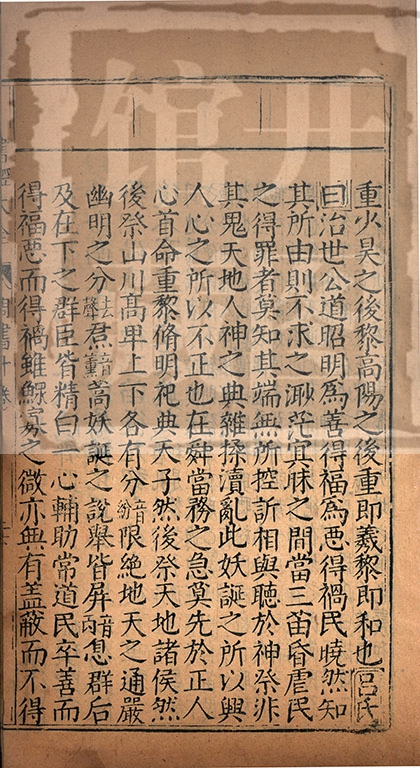 重火昊之後黎高陽之後重即羲黎即和也呂氏
曰治世公道昭明爲善得福爲惡得禍民曉然知
其所由則不求之渺茫冥昧之間當三苗昏虐民
之得罪者莫知其端無所控訴相與聽於神祭非
其鬼天地人神之典雜揉瀆亂此妖誕之所以興
人心之所以不正也在舜當務之急莫先於正人
心首命重黎脩明祀典天子然後祭天地諸侯然
後祭山川高卑上下各有分音紛限絕地天之通嚴
幽明之分去聲焄音熏蒿妖誕之說舉皆屏音丙息群后
及在下之群臣皆精白一心輔助常道民卒善而
得福惡而得禍雖鰥寡之微亦無有蓋蔽而不得